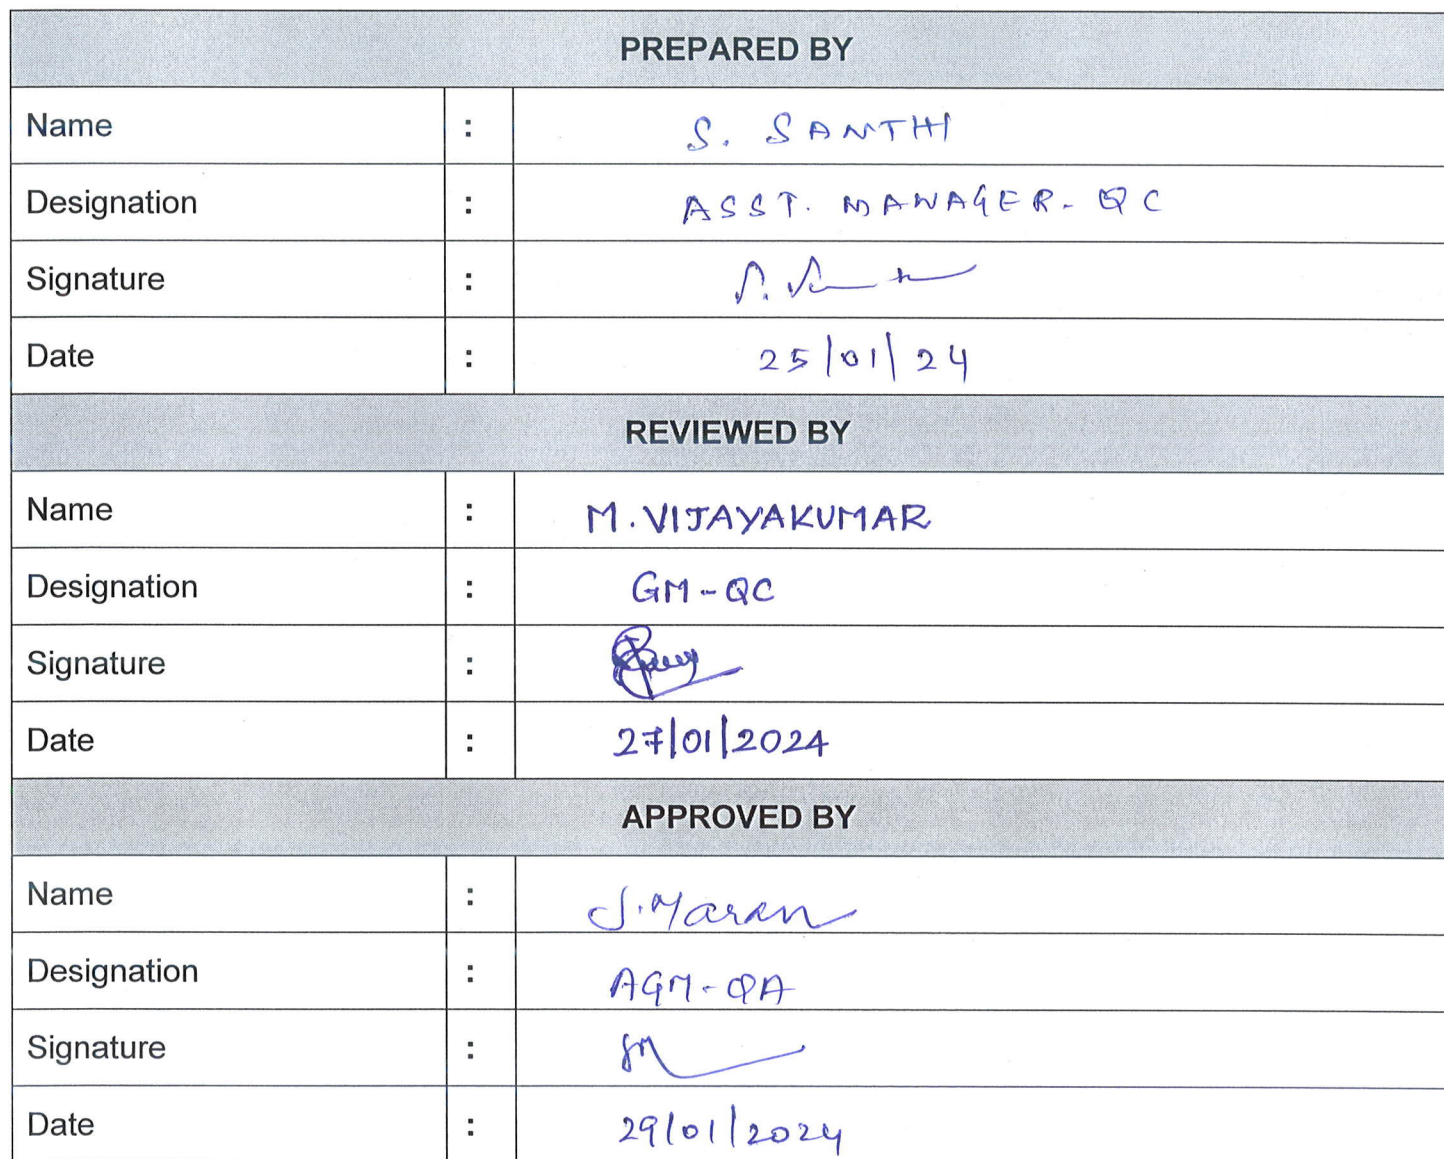 PREPARED BY
Name : S. SANTHI
Designation : ASST. MANAGER - QC
Signature :
Date : 25/01/24
REVIEWED BY
Name : M. VIJAYAKUMAR
Designation : GM - QC
Signature :
Date : 27/01/2024
APPROVED BY
Name : J. Maran
Designation : AGM - QA
Signature :
Date : 29/01/2024